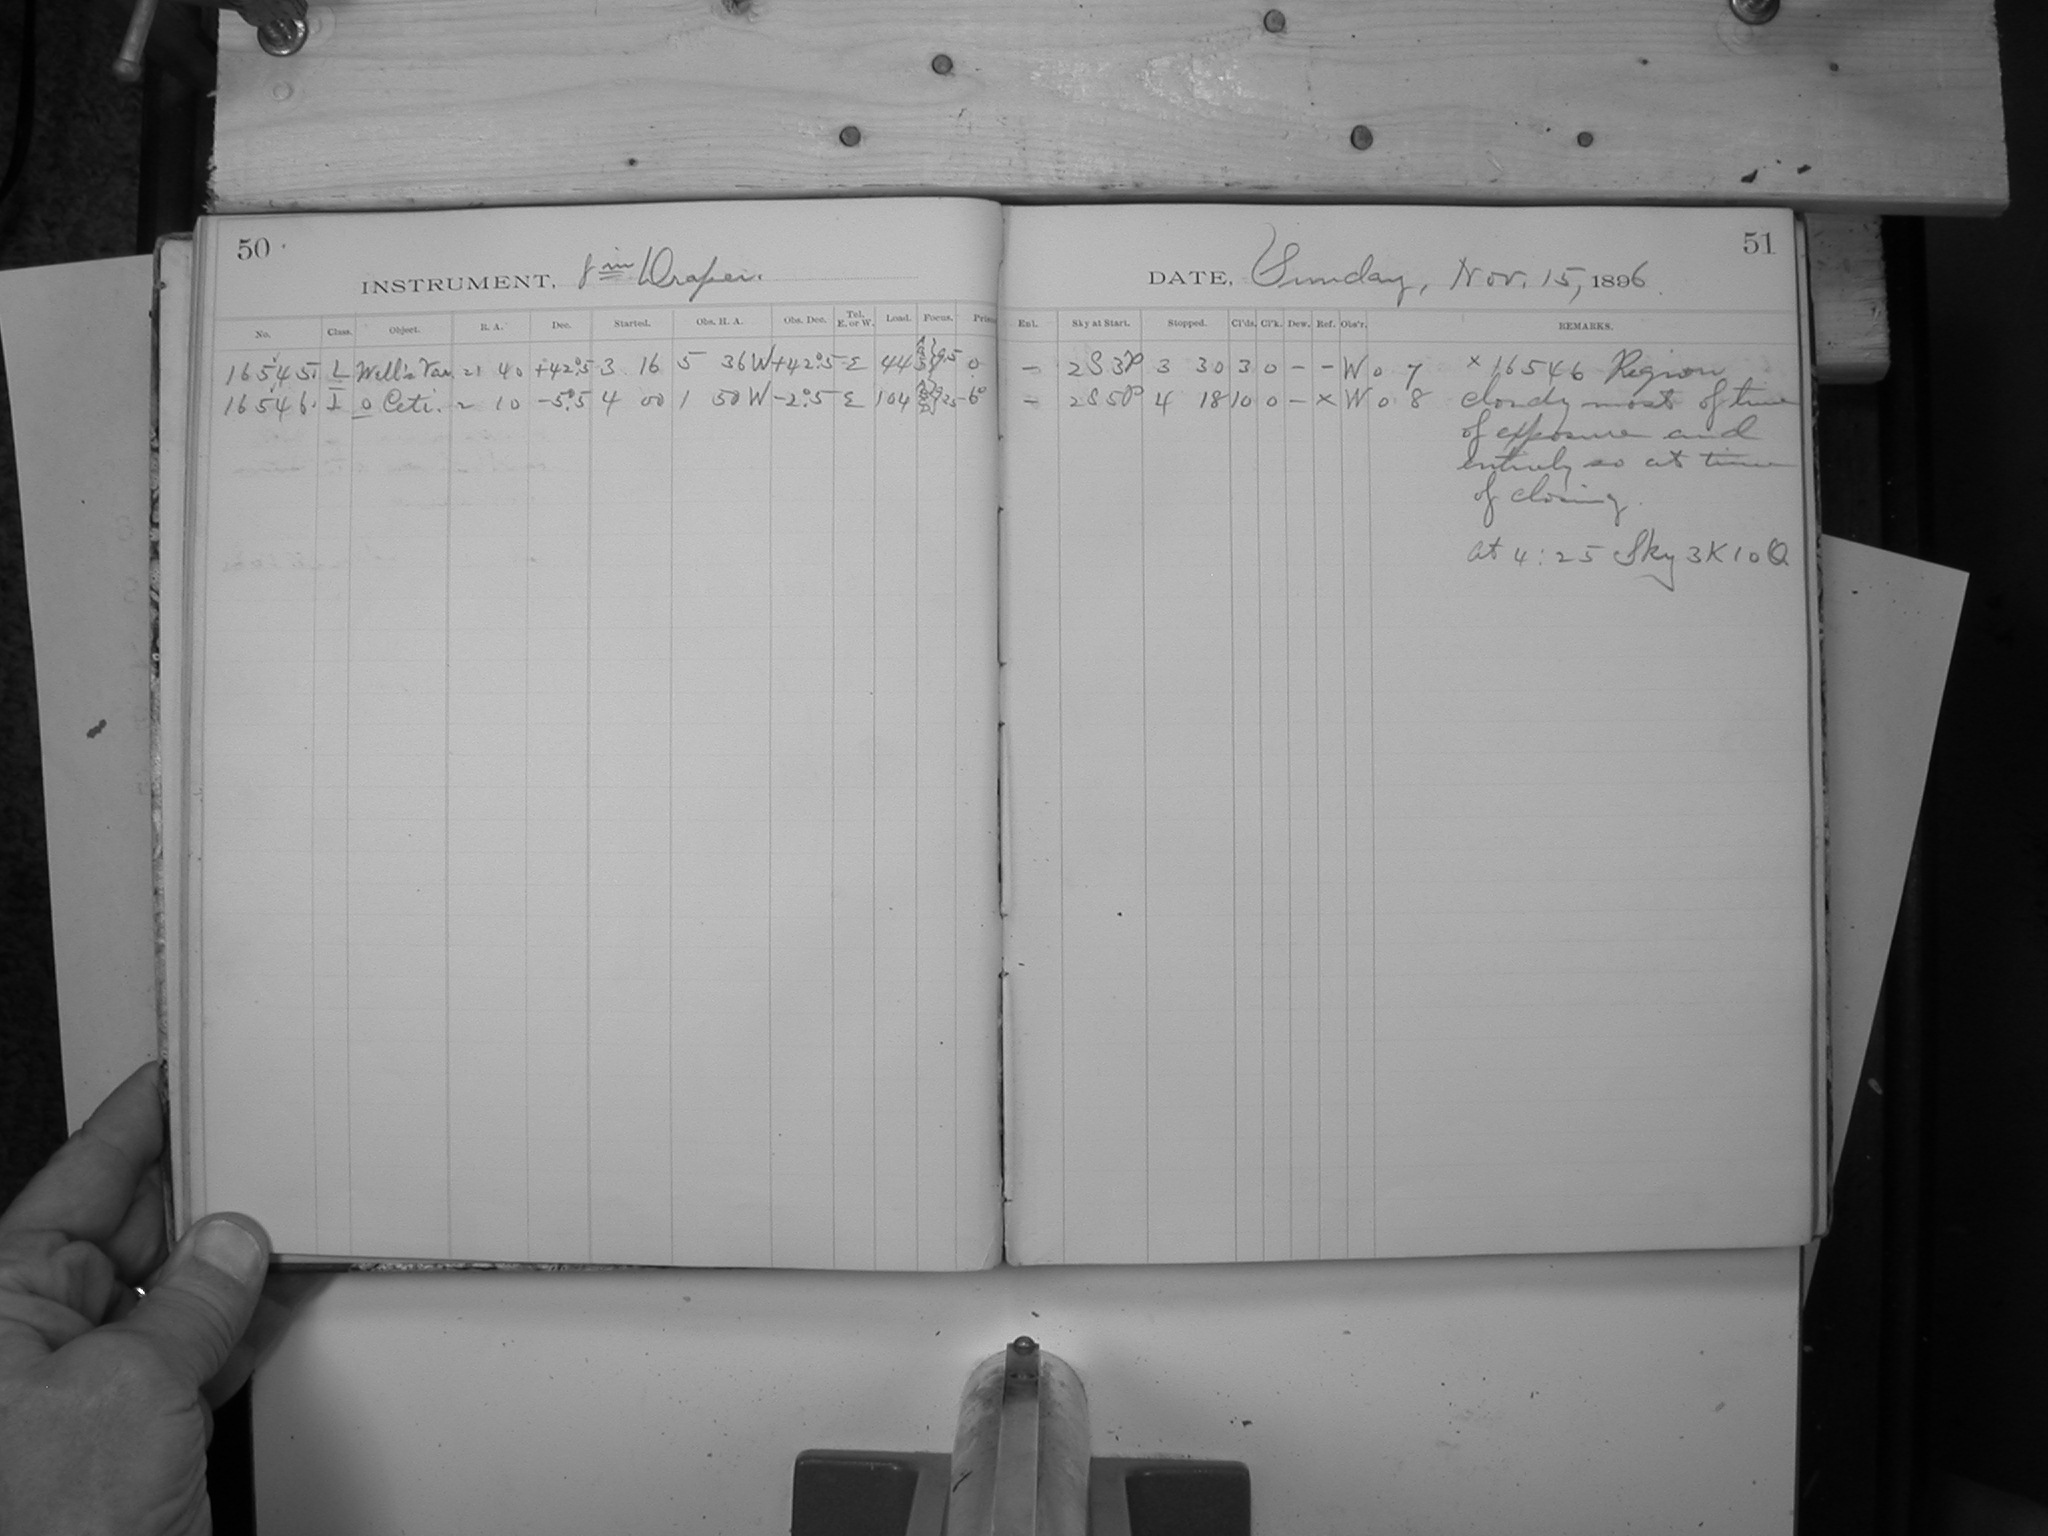 50
INSTRUMENT, 8 in Draper.
No. Class. Object. R. A. Dec. Started. Obs. H. A. Obs. Dec. Tel. E. or W. Load. Focus. Prism
16545. L Well's Var. 21 40 +42°.5 3 16 5 36 W +42°.5 E 44 9.5 0
16546. I o Ceti. 2 10 -5°.5 4 00 1 50 W -2°.5 E 104 9.25 6°
51
DATE, Sunday, Nov. 15, 1896.
Enl. Sky at Start. Stopped. Cl'ds. Cl'k. Dew. Ref. Obs'r. REMARKS.
– 2S3P 3 30 3 0 – – W 0 7 × 16546 Region
– 2S5P 4 18 10 0 – × W 0 8 cloudy most of time
of exposure and
entirely so at time
of closing.
at 4:25 Sky 3K10Q